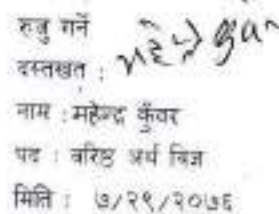 रुजु गर्ने
दस्तखत :
नाम : महेन्द्र कुँवर
पद : वरिष्ठ अर्थ विज्ञ
मिति : ७/२९/२०७६